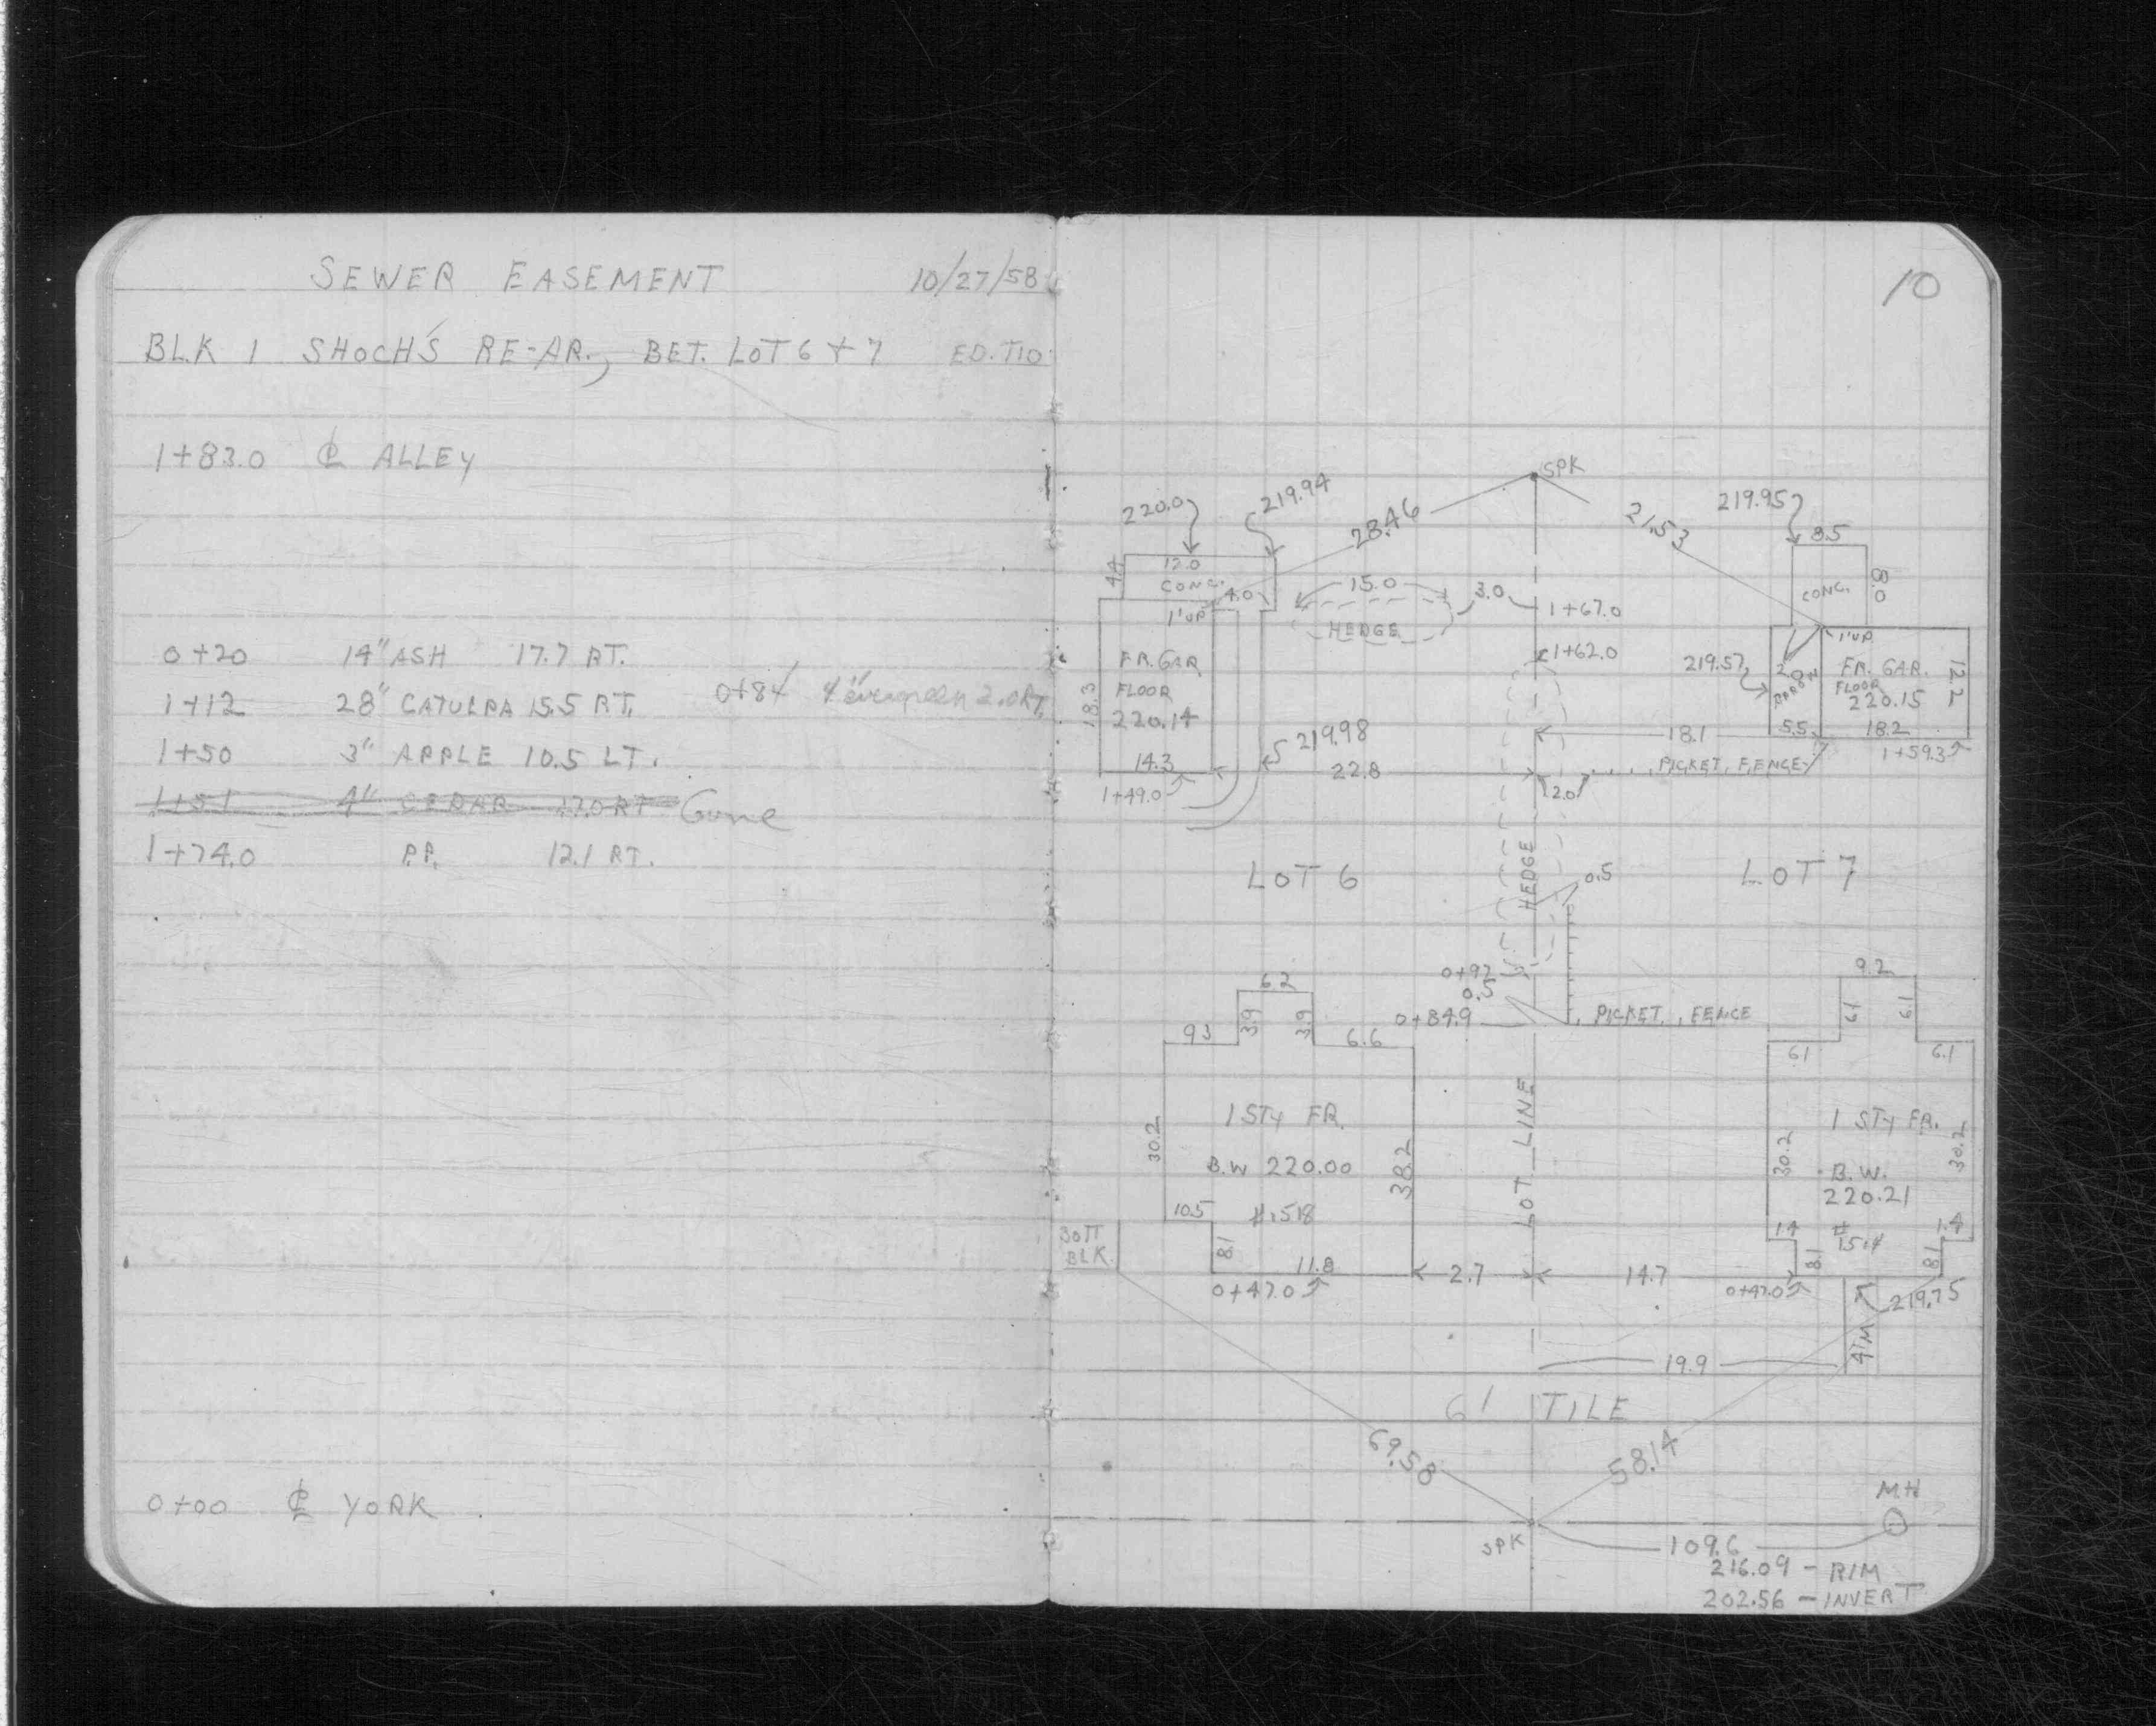 SEWER EASEMENT 10/27/58
BLK 1 SHOCH'S RE-AR., BET. LOT 6 + 7
1+83.0 ℄ ALLEY
0+20 14" ASH 17.7 RT.
1+12 28" CATULPA 15.5 RT. 0+84 4" evergreen 2.0 RT.
1+50 3" APPLE 10.5 LT.
1+51 4" CEDAR 17.0 RT Gone
1+74.0 P.P. 12.1 RT.
0+00 ℄ YORK
10
SPK
220.0 219.94 28.46 21.53 219.95
8.5
4.4 12.0 CONC. 4.0 15.0 3.0 1+67.0 CONC. 8.0
1'UP HEDGE 1'UP
1+62.0
FR. GAR. FLOOR 220.14
18.3
219.57 2.0 APRON FR. GAR. FLOOR 220.15 12.2
14.3 219.98 22.8 18.1 5.5 18.2
1+49.0 2.0 PICKET FENCE 1+59.3
HEDGE
LOT 6 0.5 LOT 7
0+92
0.5
0+84.9 PICKET FENCE
6.2 9.2
9.3 3.9 3.9 6.6 6.1 6.1 6.1 6.1
1 STY FR. 1 STY FR.
30.2 B.W 220.00 38.2 LOT LINE 30.2 B.W. 220.21 30.2
10.5 #1518 1.4 # 1514 1.4
BLK.
8.1 11.8 2.7 14.7 8.1 8.1
0+47.0 0+47.0 219.75
19.9 4'M
6' TILE
69.58 58.14
MH
SPK 109.6
216.09 - RIM
202.56 - INVERT